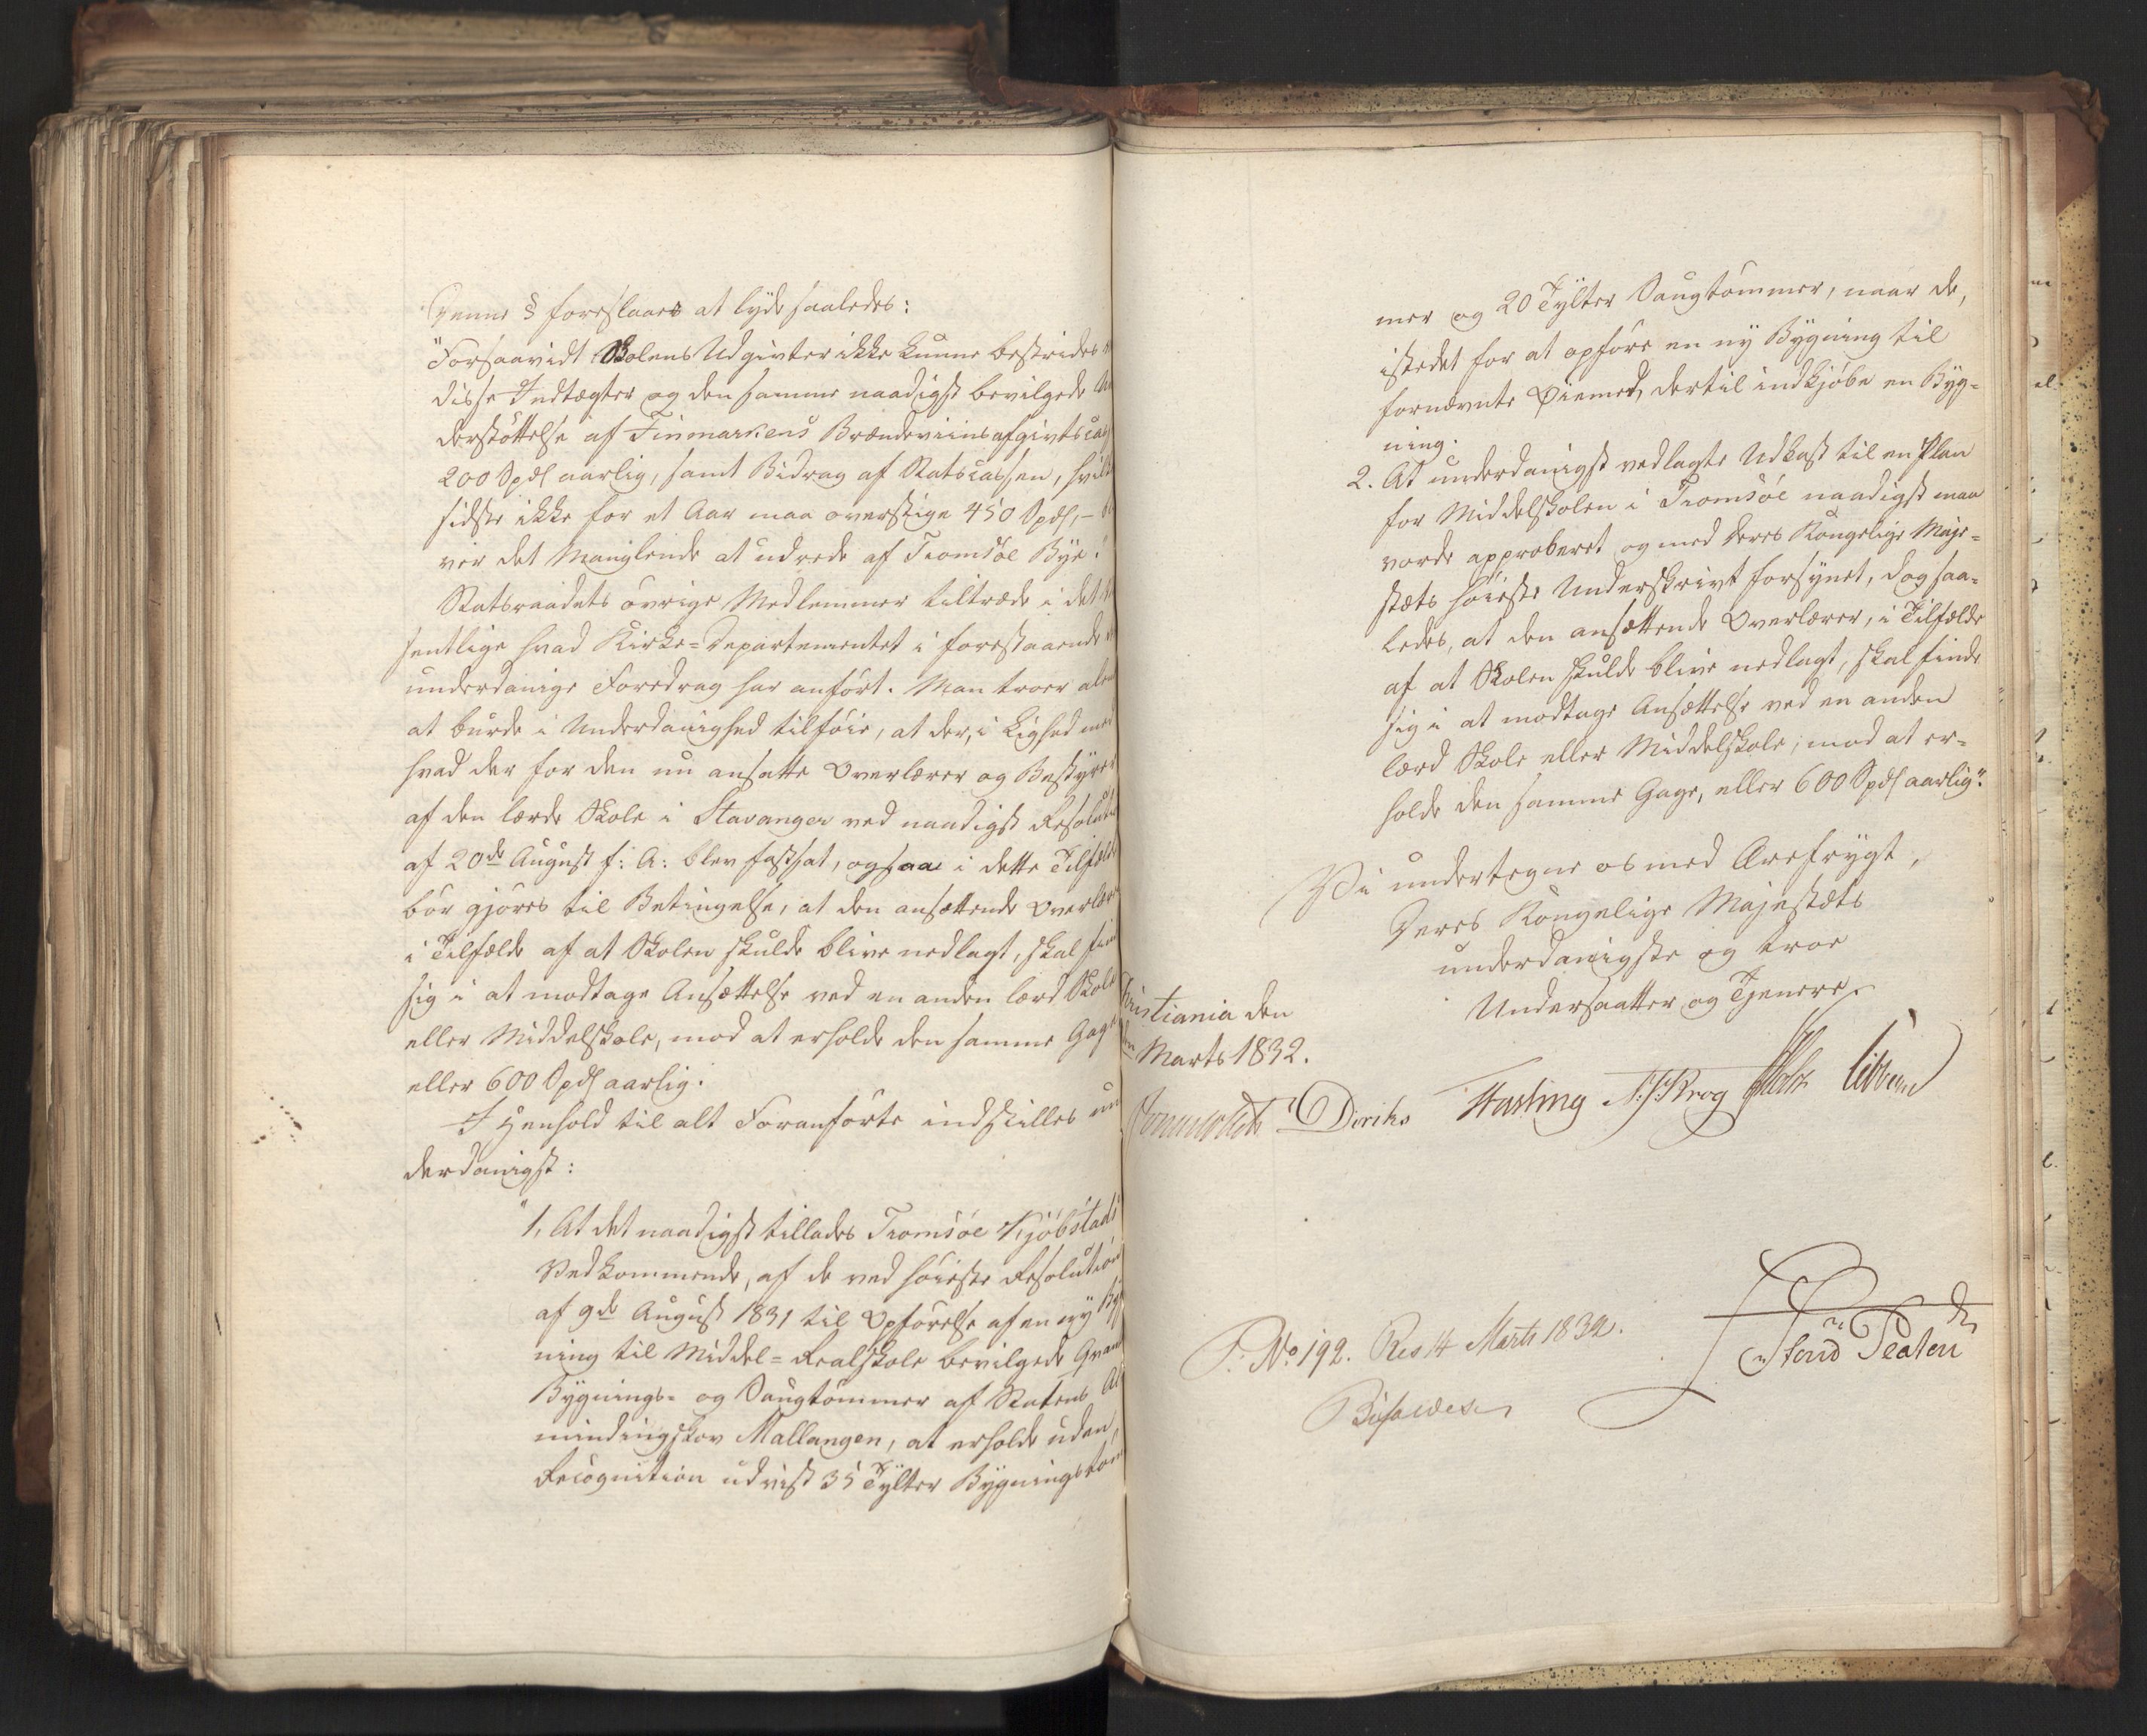 Denne § foreslaaes at lyde saaledes:
"Forsaavidt Skolens Udgivter ikke kunne bestrides
disse Indtægter og den samme naadigst bevilgede
derstøttelse af Finmarkens Brændeviinsafgivtscas
200 Spd aarlig, samt Bidrag af Statscassen, hvilk
sidste ikke for et Aar maa overstige 450 Spd, -
ver det Manglende at udrede af Tromsöe Bye."
Statsraadets övrige Medlemmer tiltræde i det
sentlige hvad Kirke-Departementet i forestaaende
underdanige Foredrag har anført. Man troer alene
at burde i Underdanighed tilföie, at der, i Lighed med
hvad der for den nu ansatte Overlærer og Bestyrer
af den lærde Skole i Stavanger ved naadigst Resoluti
af 20de August f: A: blev fastsat, ogsaa i dette Tilfælde
bör gjöres til Betingelse, at den ansættende Overlær
i Tilfælde af at Skolen skulde blive nedlagt, skal fin
sig i at modtage Ansættelse ved en anden lærd Skole
eller Middelskole, mod at erholde den samme Gage
eller 600 Spd aarlig.
I Henhold til alt Foranförte indstilles un
derdanigst:
"1, At det naadigst tillades Tromsöe Kjöbstads
Vedkommende, af de ved höieste Resolution
af 9de August 1831 til Opförelse af en ny Byg
ning til Middel-Realskole bevilgede Gran
Bygnings- og Saugtömmer af Statens Al
mindingskov Mallangen, at erholde uden
Recognition udvist 35 Tylter Bygningstöm
mer og 20 Tylter Saugtömmer, naar de,
istedet for at opföre en ny Bygning til
fornævnte Öiemed, dertil indkjöbe en Byg-
ning.
2. At underdanigst vedlagte Udkast til en Plan
for Middelskolen i Tromsöe naadigst maa
vorde approberet og med Deres Kongelige Maje-
stæts höieste Underskrivt forsynet, dog saa-
ledes, at den ansættende Overlærer, i Tilfælde
af at Skolen skulde blive nedlagt, skal finde
sig i at modtage Ansættelse ved en anden
lærd Skole eller Middelskole, mod at er-
holde den samme Gage, eller 600 Spd aarlig."
Vi undertegne os med Ærefrygt,
Deres Kongelige Majestæts
underdanigste og troe
Undersaatter og Tjenere.
Christiania den
Marts 1832.
Diriks Fasting Krog Holst
F: No 192. Res 14 Marts 1832.